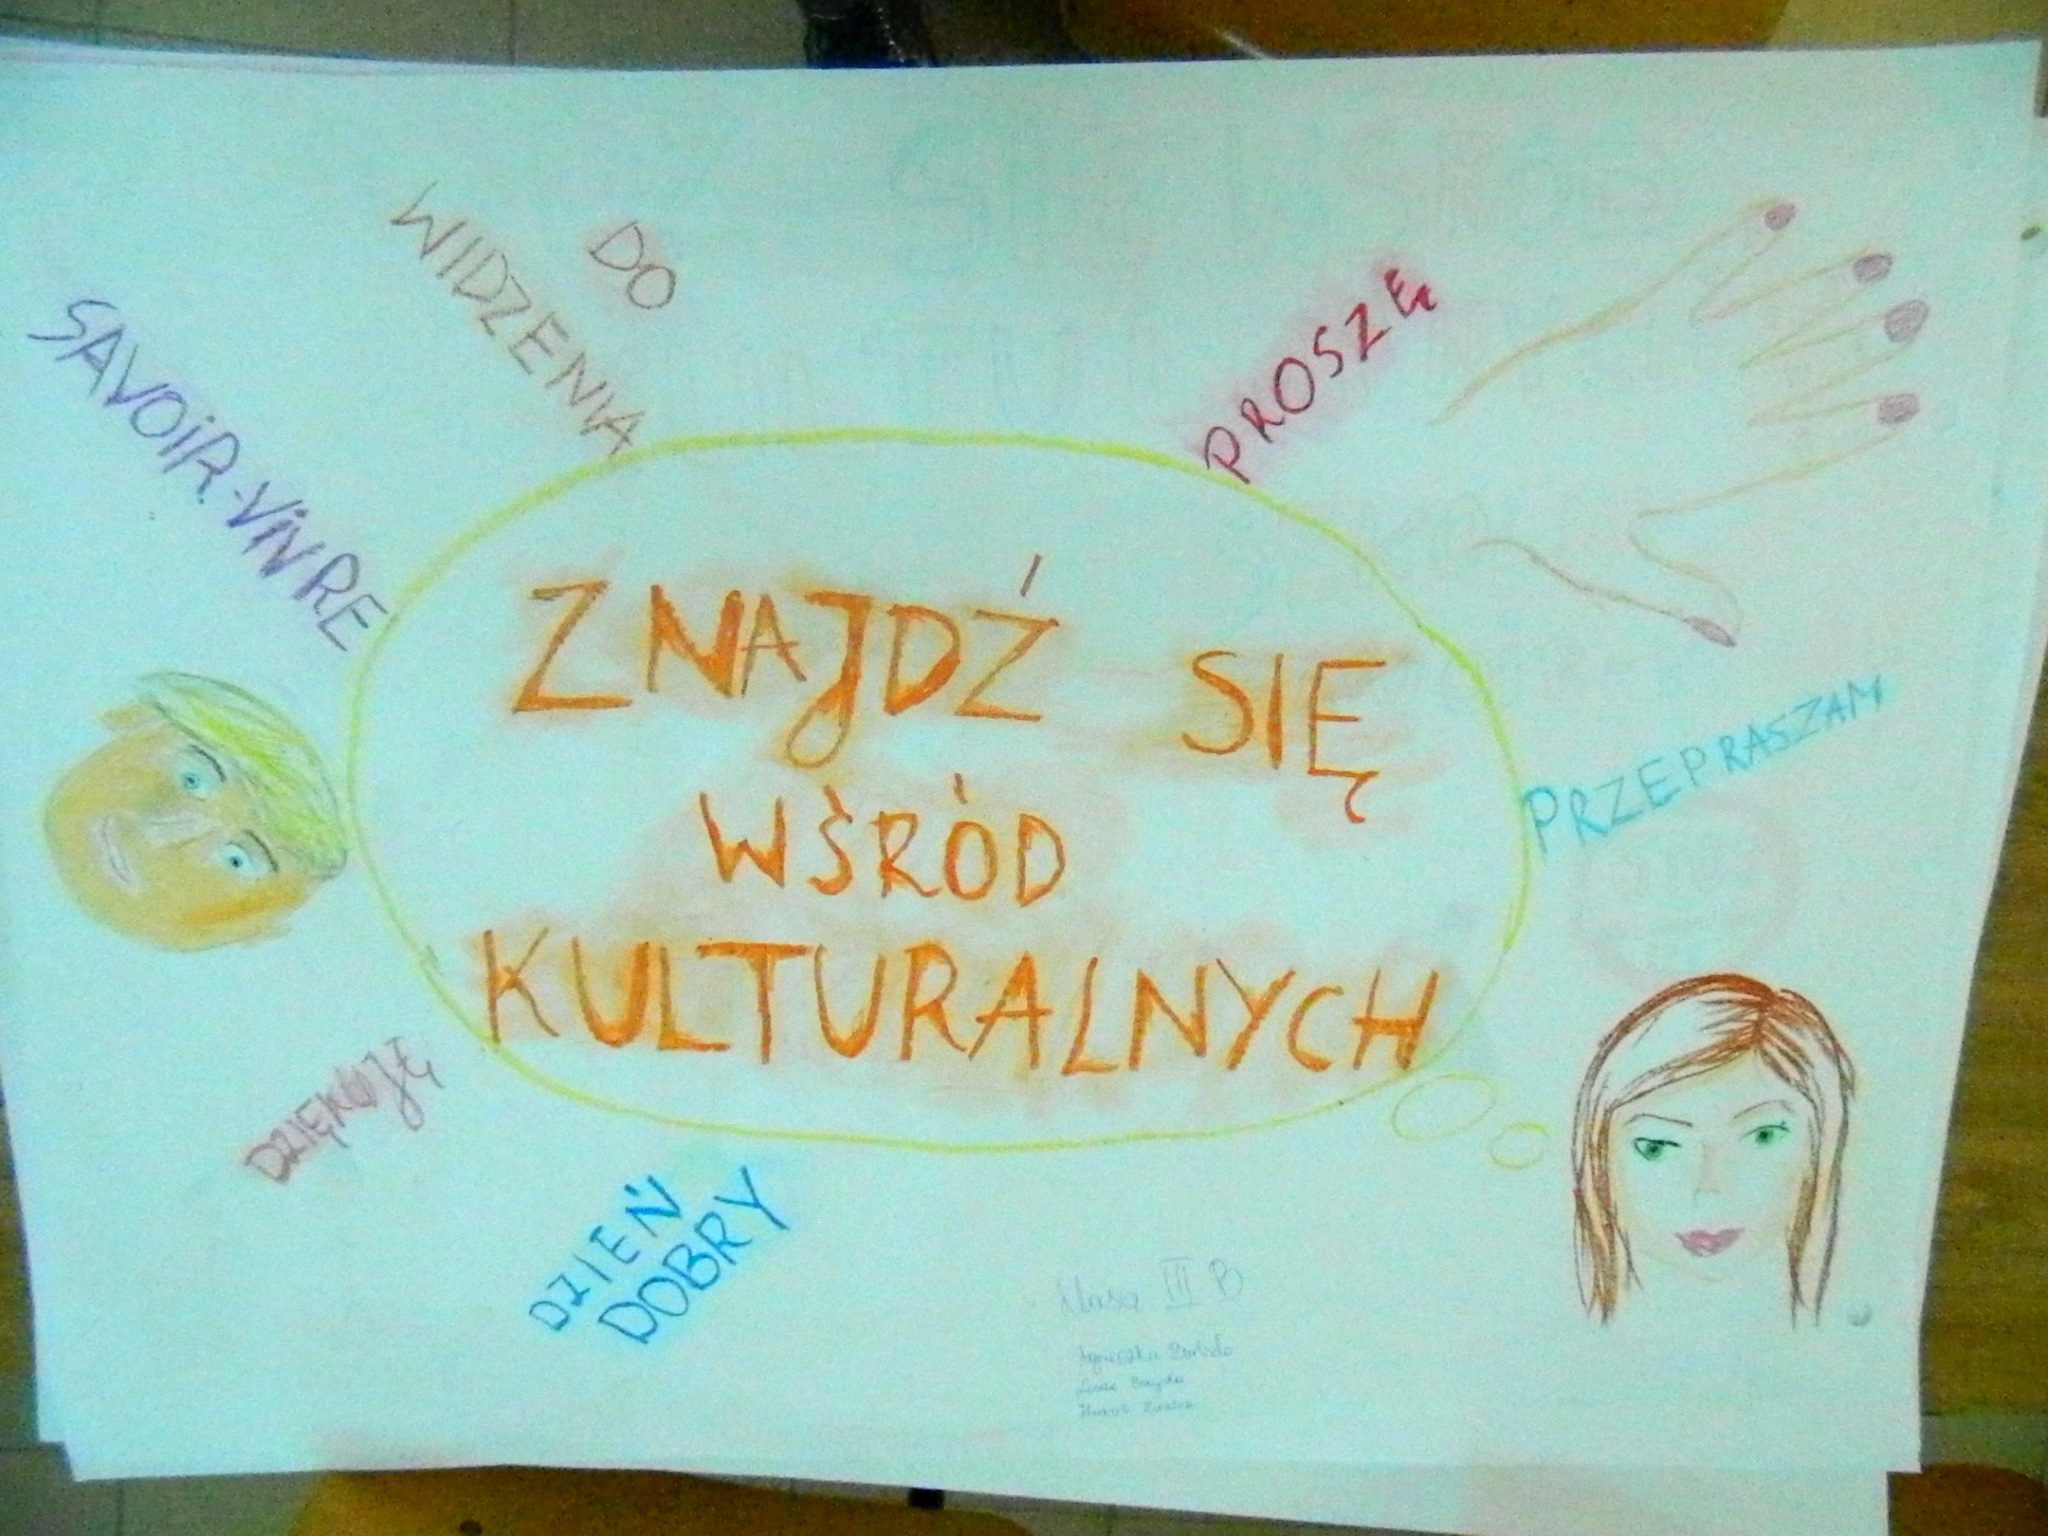 SAVOIR-VIVRE
DO
WIDZENIA
PROSZĘ
ZNAJDŹ SIĘ
WŚRÓD
KULTURALNYCH
PRZEPRASZAM
DZIĘKUJĘ
DZIEŃ
DOBRY
Klasa III B
Agnieszka